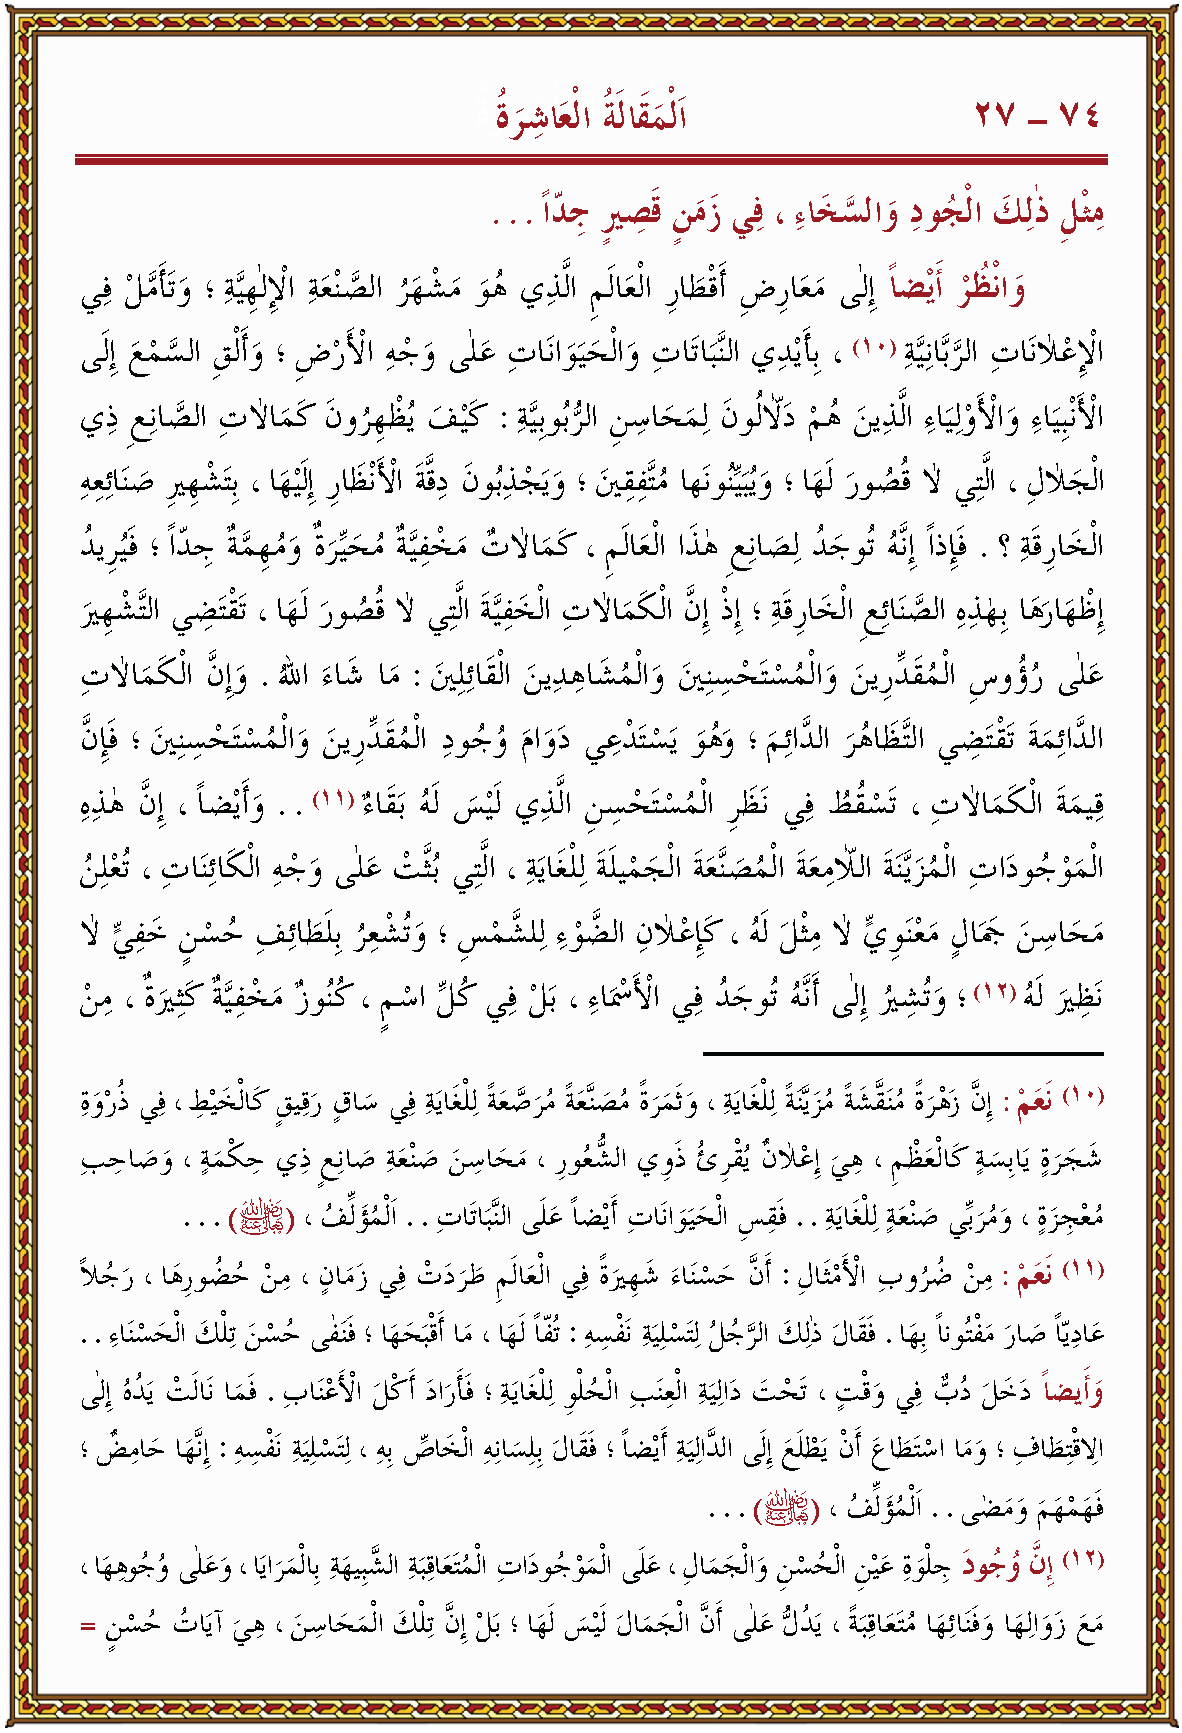 ٧٤ – ٢٧ اَلْمَقَالَةُ الْعَاشِرَةُ
مِثْلِ ذٰلِكَ الْجُودِ وَالسَّخَاءِ ، فِي زَمَنٍ قَصِيرٍ جِدّاً . . .
وَانْظُرْ أَيْضاً إِلٰى مَعَارِضِ أَقْطَارِ الْعَالَمِ الَّذِي هُوَ مَشْهَرُ الصَّنْعَةِ الْإِلٰهِيَّةِ ؛ وَتَأَمَّلْ فِي
الْإِعْلَانَاتِ الرَّبَّانِيَّةِ (١٠) ، بِأَيْدِي النَّبَاتَاتِ وَالْحَيَوَانَاتِ عَلٰى وَجْهِ الْأَرْضِ ؛ وَأَلْقِ السَّمْعَ إِلَى
الْأَنْبِيَاءِ وَالْأَوْلِيَاءِ الَّذِينَ هُمْ دَلَّالُونَ لِمَحَاسِنِ الرُّبُوبِيَّةِ : كَيْفَ يُظْهِرُونَ كَمَالَاتِ الصَّانِعِ ذِي
الْجَلَالِ ، الَّتِي لَا قُصُورَ لَهَا ؛ وَيُبَيِّنُونَهَا مُتَّفِقِينَ ؛ وَيَجْذِبُونَ دِقَّةَ الْأَنْظَارِ إِلَيْهَا ، بِتَشْهِيرِ صَنَائِعِهِ
الْخَارِقَةِ ؟ . فَإِذاً إِنَّهُ تُوجَدُ لِصَانِعِ هٰذَا الْعَالَمِ ، كَمَالَاتٌ مَخْفِيَّةٌ مُحَيِّرَةٌ وَمُهِمَّةٌ جِدّاً ؛ فَيُرِيدُ
إِظْهَارَهَا بِهٰذِهِ الصَّنَائِعِ الْخَارِقَةِ ؛ إِذْ إِنَّ الْكَمَالَاتِ الْخَفِيَّةَ الَّتِي لَا قُصُورَ لَهَا ، تَقْتَضِي التَّشْهِيرَ
عَلٰى رُؤُوسِ الْمُقَدِّرِينَ وَالْمُسْتَحْسِنِينَ وَالْمُشَاهِدِينَ الْقَائِلِينَ : مَا شَاءَ اللهُ . وَإِنَّ الْكَمَالَاتِ
الدَّائِمَةَ تَقْتَضِي التَّظَاهُرَ الدَّائِمَ ؛ وَهُوَ يَسْتَدْعِي دَوَامَ وُجُودِ الْمُقَدِّرِينَ وَالْمُسْتَحْسِنِينَ ؛ فَإِنَّ
قِيمَةَ الْكَمَالَاتِ ، تَسْقُطُ فِي نَظَرِ الْمُسْتَحْسِنِ الَّذِي لَيْسَ لَهُ بَقَاءٌ (١١) . . وَأَيْضاً ، إِنَّ هٰذِهِ
الْمَوْجُودَاتِ الْمُزَيَّنَةَ اللَّامِعَةَ الْمُصَنَّعَةَ الْجَمِيلَةَ لِلْغَايَةِ ، الَّتِي بُثَّتْ عَلٰى وَجْهِ الْكَائِنَاتِ ، تُعْلِنُ
مَحَاسِنَ جَمَالٍ مَعْنَوِيٍّ لَا مِثْلَ لَهُ ، كَإِعْلَانِ الضَّوْءِ لِلشَّمْسِ ؛ وَتُشْعِرُ بِلَطَائِفِ حُسْنٍ خَفِيٍّ لَا
نَظِيرَ لَهُ (١٢) ؛ وَتُشِيرُ إِلٰى أَنَّهُ تُوجَدُ فِي الْأَسْمَاءِ ، بَلْ فِي كُلِّ اسْمٍ ، كُنُوزٌ مَخْفِيَّةٌ كَثِيرَةٌ ، مِنْ
(١٠) نَعَمْ : إِنَّ زَهْرَةً مُنَقَّشَةً مُزَيَّنَةً لِلْغَايَةِ ، وَثَمَرَةً مُصَنَّعَةً مُرَصَّعَةً لِلْغَايَةِ فِي سَاقٍ رَقِيقٍ كَالْخَيْطِ ، فِي ذُرْوَةِ
شَجَرَةٍ يَابِسَةٍ كَالْعَظْمِ ، هِيَ إِعْلَانٌ يُقْرِئُ ذَوِي الشُّعُورِ ، مَحَاسِنَ صَنْعَةِ صَانِعٍ ذِي حِكْمَةٍ ، وَصَاحِبِ
مُعْجِزَةٍ ، وَمُرَبِّي صَنْعَةٍ لِلْغَايَةِ . . فَقِسِ الْحَيَوَانَاتِ أَيْضاً عَلَى النَّبَاتَاتِ . . اَلْمُؤَلِّفُ ، (رَضِيَ اللهُ عَنْهُ) . . .
(١١) نَعَمْ : مِنْ ضُرُوبِ الْأَمْثَالِ : أَنَّ حَسْنَاءَ شَهِيرَةً فِي الْعَالَمِ طَرَدَتْ فِي زَمَانٍ ، مِنْ حُضُورِهَا ، رَجُلاً
عَادِيّاً صَارَ مَفْتُوناً بِهَا . فَقَالَ ذٰلِكَ الرَّجُلُ لِتَسْلِيَةِ نَفْسِهِ : تُفّاً لَهَا ، مَا أَقْبَحَهَا ؛ فَنَفٰى حُسْنَ تِلْكَ الْحَسْنَاءِ . .
وَأَيضاً دَخَلَ دُبٌّ فِي وَقْتٍ ، تَحْتَ دَالِيَةِ الْعِنَبِ الْحُلْوِ لِلْغَايَةِ ؛ فَأَرَادَ أَكْلَ الْأَعْنَابِ . فَمَا نَالَتْ يَدُهُ إِلٰى
الِاقْتِطَافِ ؛ وَمَا اسْتَطَاعَ أَنْ يَطْلَعَ إِلَى الدَّالِيَةِ أَيْضاً ؛ فَقَالَ بِلِسَانِهِ الْخَاصِّ بِهِ ، لِتَسْلِيَةِ نَفْسِهِ : إِنَّهَا حَامِضٌ ؛
فَهَمْهَمَ وَمَضٰى . . اَلْمُؤَلِّفُ ، (رَضِيَ اللهُ عَنْهُ) . . .
(١٢) إِنَّ وُجُودَ جِلْوَةِ عَيْنِ الْحُسْنِ وَالْجَمَالِ ، عَلَى الْمَوْجُودَاتِ الْمُتَعَاقِبَةِ الشَّبِيهَةِ بِالْمَرَايَا ، وَعَلٰى وُجُوهِهَا ،
مَعَ زَوَالِهَا وَفَنَائِهَا مُتَعَاقِبَةً ، يَدُلُّ عَلٰى أَنَّ الْجَمَالَ لَيْسَ لَهَا ؛ بَلْ إِنَّ تِلْكَ الْمَحَاسِنَ ، هِيَ آيَاتُ حُسْنٍ =